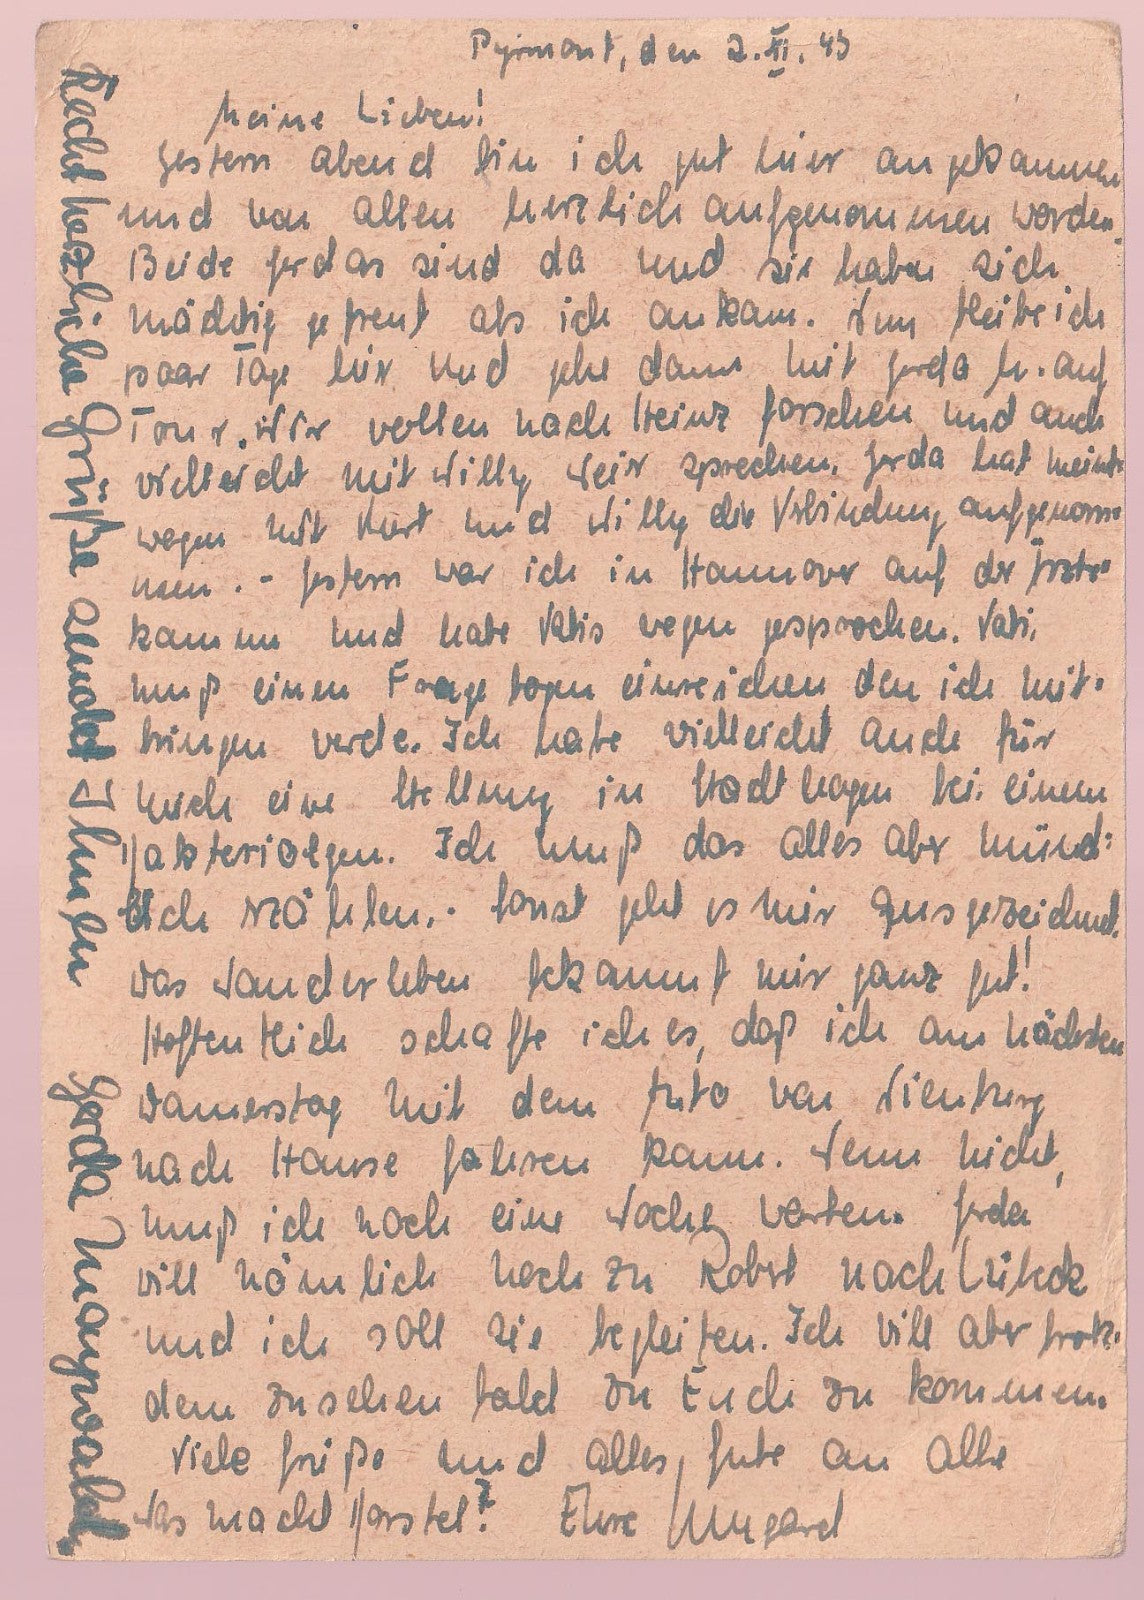 Pyrmont, den 2. XI. 45
Meine Lieben!
Gestern abend bin ich gut hier angekommen
und von allen herzlich aufgenommen worden.
Beide Gerdas sind da und sie haben sich
mächtig gefreut als ich ankam. Nun bleibe ich
paar Tage hier und gehe dann mit Gerda M. auf
Tour. Wir wollen nach Heinz forschen und auch
vielleicht mit Willy Weir sprechen. Gerda hat meinet-
wegen mit Kurt und Willy die Verbindung aufgenom-
men. - Gestern war ich in Hannover auf der Ärzte-
kammer und habe Vatis wegen gesprochen. Vati
muß einen Fragebogen einreichen, den ich mit-
bringen werde. Ich habe vielleicht auch für
mich eine Stellung in Stadthagen bei einem
Bakteriologen. Ich muß das alles aber münd-
lich erzählen. - Sonst geht es mir ausgezeichnet.
Das Wanderleben bekommt mir ganz gut!
Hoffentlich schaffe ich es, daß ich am nächsten
Donnerstag mit dem Auto von Nienburg
nach Hause fahren kann. Wenn nicht,
muß ich noch eine Woche warten. Gerda
will nämlich noch zu Robert nach Lübeck
und ich soll sie begleiten. Ich will aber trotz-
dem zusehen bald zu Euch zu kommen.
Viele Grüße und alles Gute an Alle
Was macht Horstel? Eure Irmgard
Recht herzliche Grüße sendet Ihnen
Gerda Mangwald